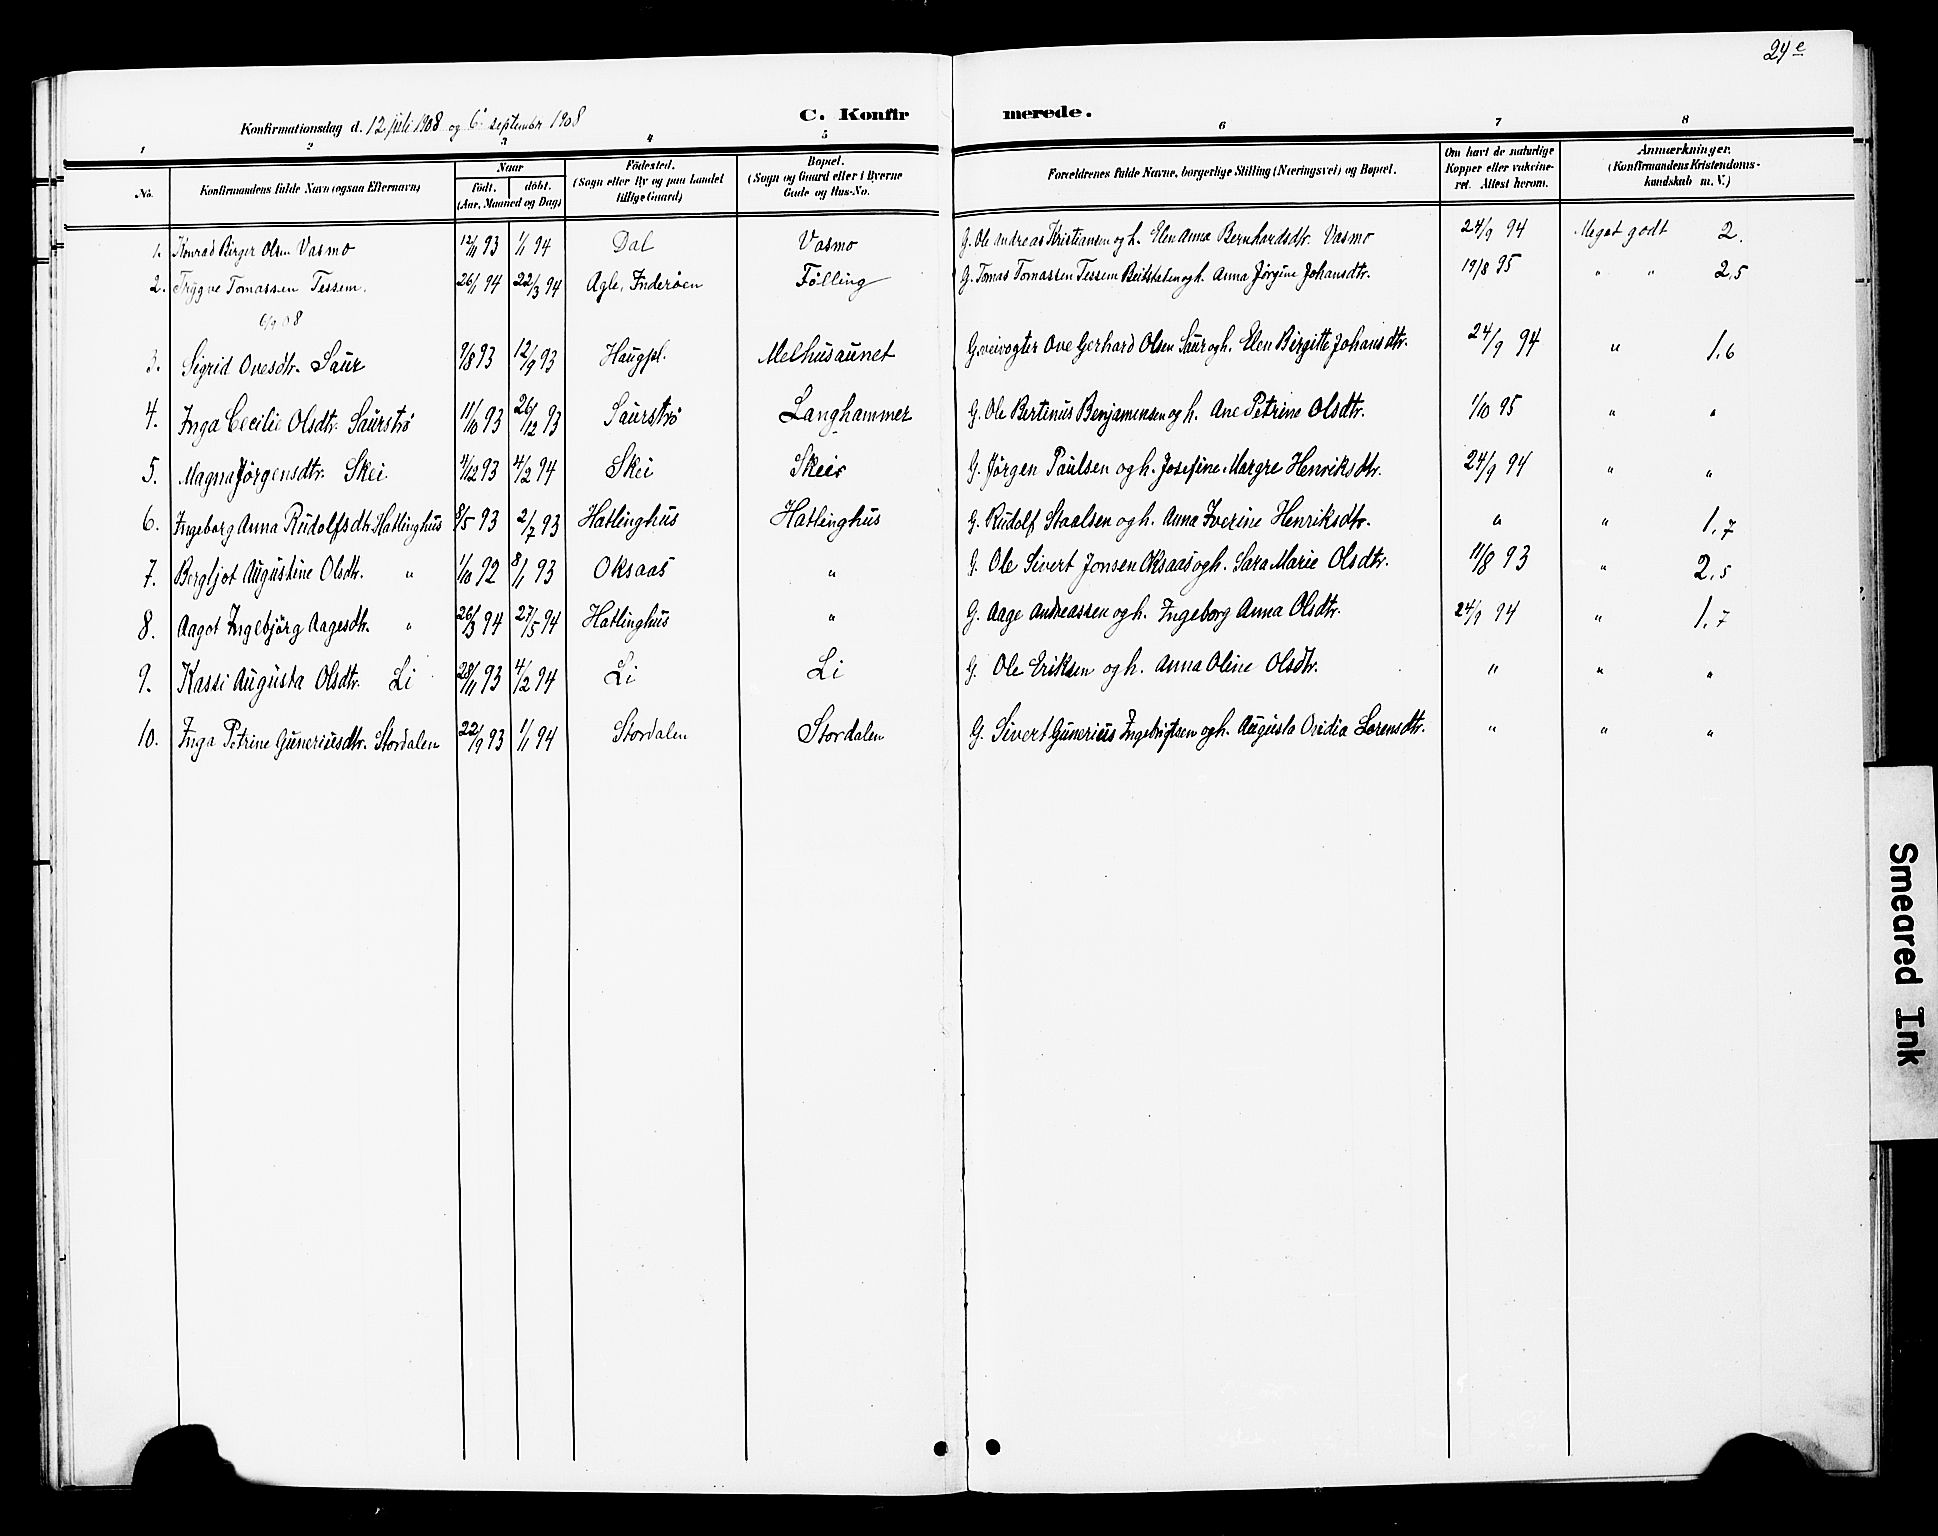 24e
Konfirmationsdag d. 12 juli 1908 og 6. september 1908
C. Konfirmerede.
1 2 3 4 5 6 7 8
No. | Konfirmandens fulde Navn (ogsaa Efternavn) | Naar født. døbt. (Aar, Maaned og Dag) | Fødested. (Sogn eller By og paa Landet tillige Gaard) | Bopæl. (Sogn og Gaard eller i Byerne Gade og Hus-No. | Forældrenes fulde Navne, borgerlige Stilling (Næringsvei) og Bopæl. | Om havt de naturlige Kopper eller vakcineret. Attest herom. | Anmærkninger. (Konfirmandens Kristendomskundskab m. V.)
1. Konrad Birger Olsen Vasmo | 12/11 93 | 1/1 94 | Dal | Vasmo | G. Ole Andreas Kristiansen og h. Elen Anna Bernhardsdtr. Vasmo | 24/9 94 | Meget godt 2.
2. Trygve Tomassen Tessem. | 26/1 94 | 22/3 94 | Agle, Inderøen | Følling | G. Tomas Tomassen Tessem Beitstaden og h. Anna Jørgine Johansdtr. | 19/8 95 | " " 2,5
6/9 08
3. Sigrid Ovesdtr. Saur | 9/8 93 | 12/9 93 | Haugpl. | Melhusaunet | G. veivogter Ove Gerhard Olsen Saur og h. Elen Birgitte Johansdtr. | 24/9 94 | " 1.6
4. Inga Cecilie Olsdtr. Saurstrø | 11/10 93 | 26/12 93 | Saurstrø | Langhammer | G. Ole Bertinus Benjaminsen og h. Ane Petrine Olsdtr. | 1/10 95 | " "
5. Magna Jørgensdtr. Skei. | 4/12 93 | 4/2 94 | Skei | Skei | G. Jørgen Paulsen og h. Josefine Margre Henriksdtr. | 24/9 94 | " "
6. Ingeborg Anna Rudolfsdtr. Hatlinghus | 8/5 93 | 2/7 93 | Hatlinghus | Hatlinghus | G. Rudolf Staalsen og h. Anna Iverine Henriksdtr. | " | " 1.7
7. Bergljot Augustine Olsdtr. " | 1/10 92 | 8/1 93 | Oksaas | " | G. Ole Sivert Jonsen Oksaas og h. Sara Marie Olsdtr. | 11/8 93 | " 2,5
8. Aagot Ingebjørg Aagesdtr. " | 26/3 94 | 27/5 94 | Hatlinghus | " | G. Aage Andreassen og h. Ingeborg Anna Olsdtr. | 24/9 94 | " 1.7
9. Kassi Augusta Olsdtr. Li | 28/11 93 | 4/2 94 | Li | Li | G. Ole Eriksen og h. Anna Oline Olsdtr. | " | " "
10. Inga Petrine Guneriusdtr. Stordalen | 22/9 93 | 1/1 94 | Stordalen | Stordalen | G. Sivert Gunerius Ingebrigtsen og h. Augusta Ovidia Lorensdtr. | " | " "
Smeared Ink